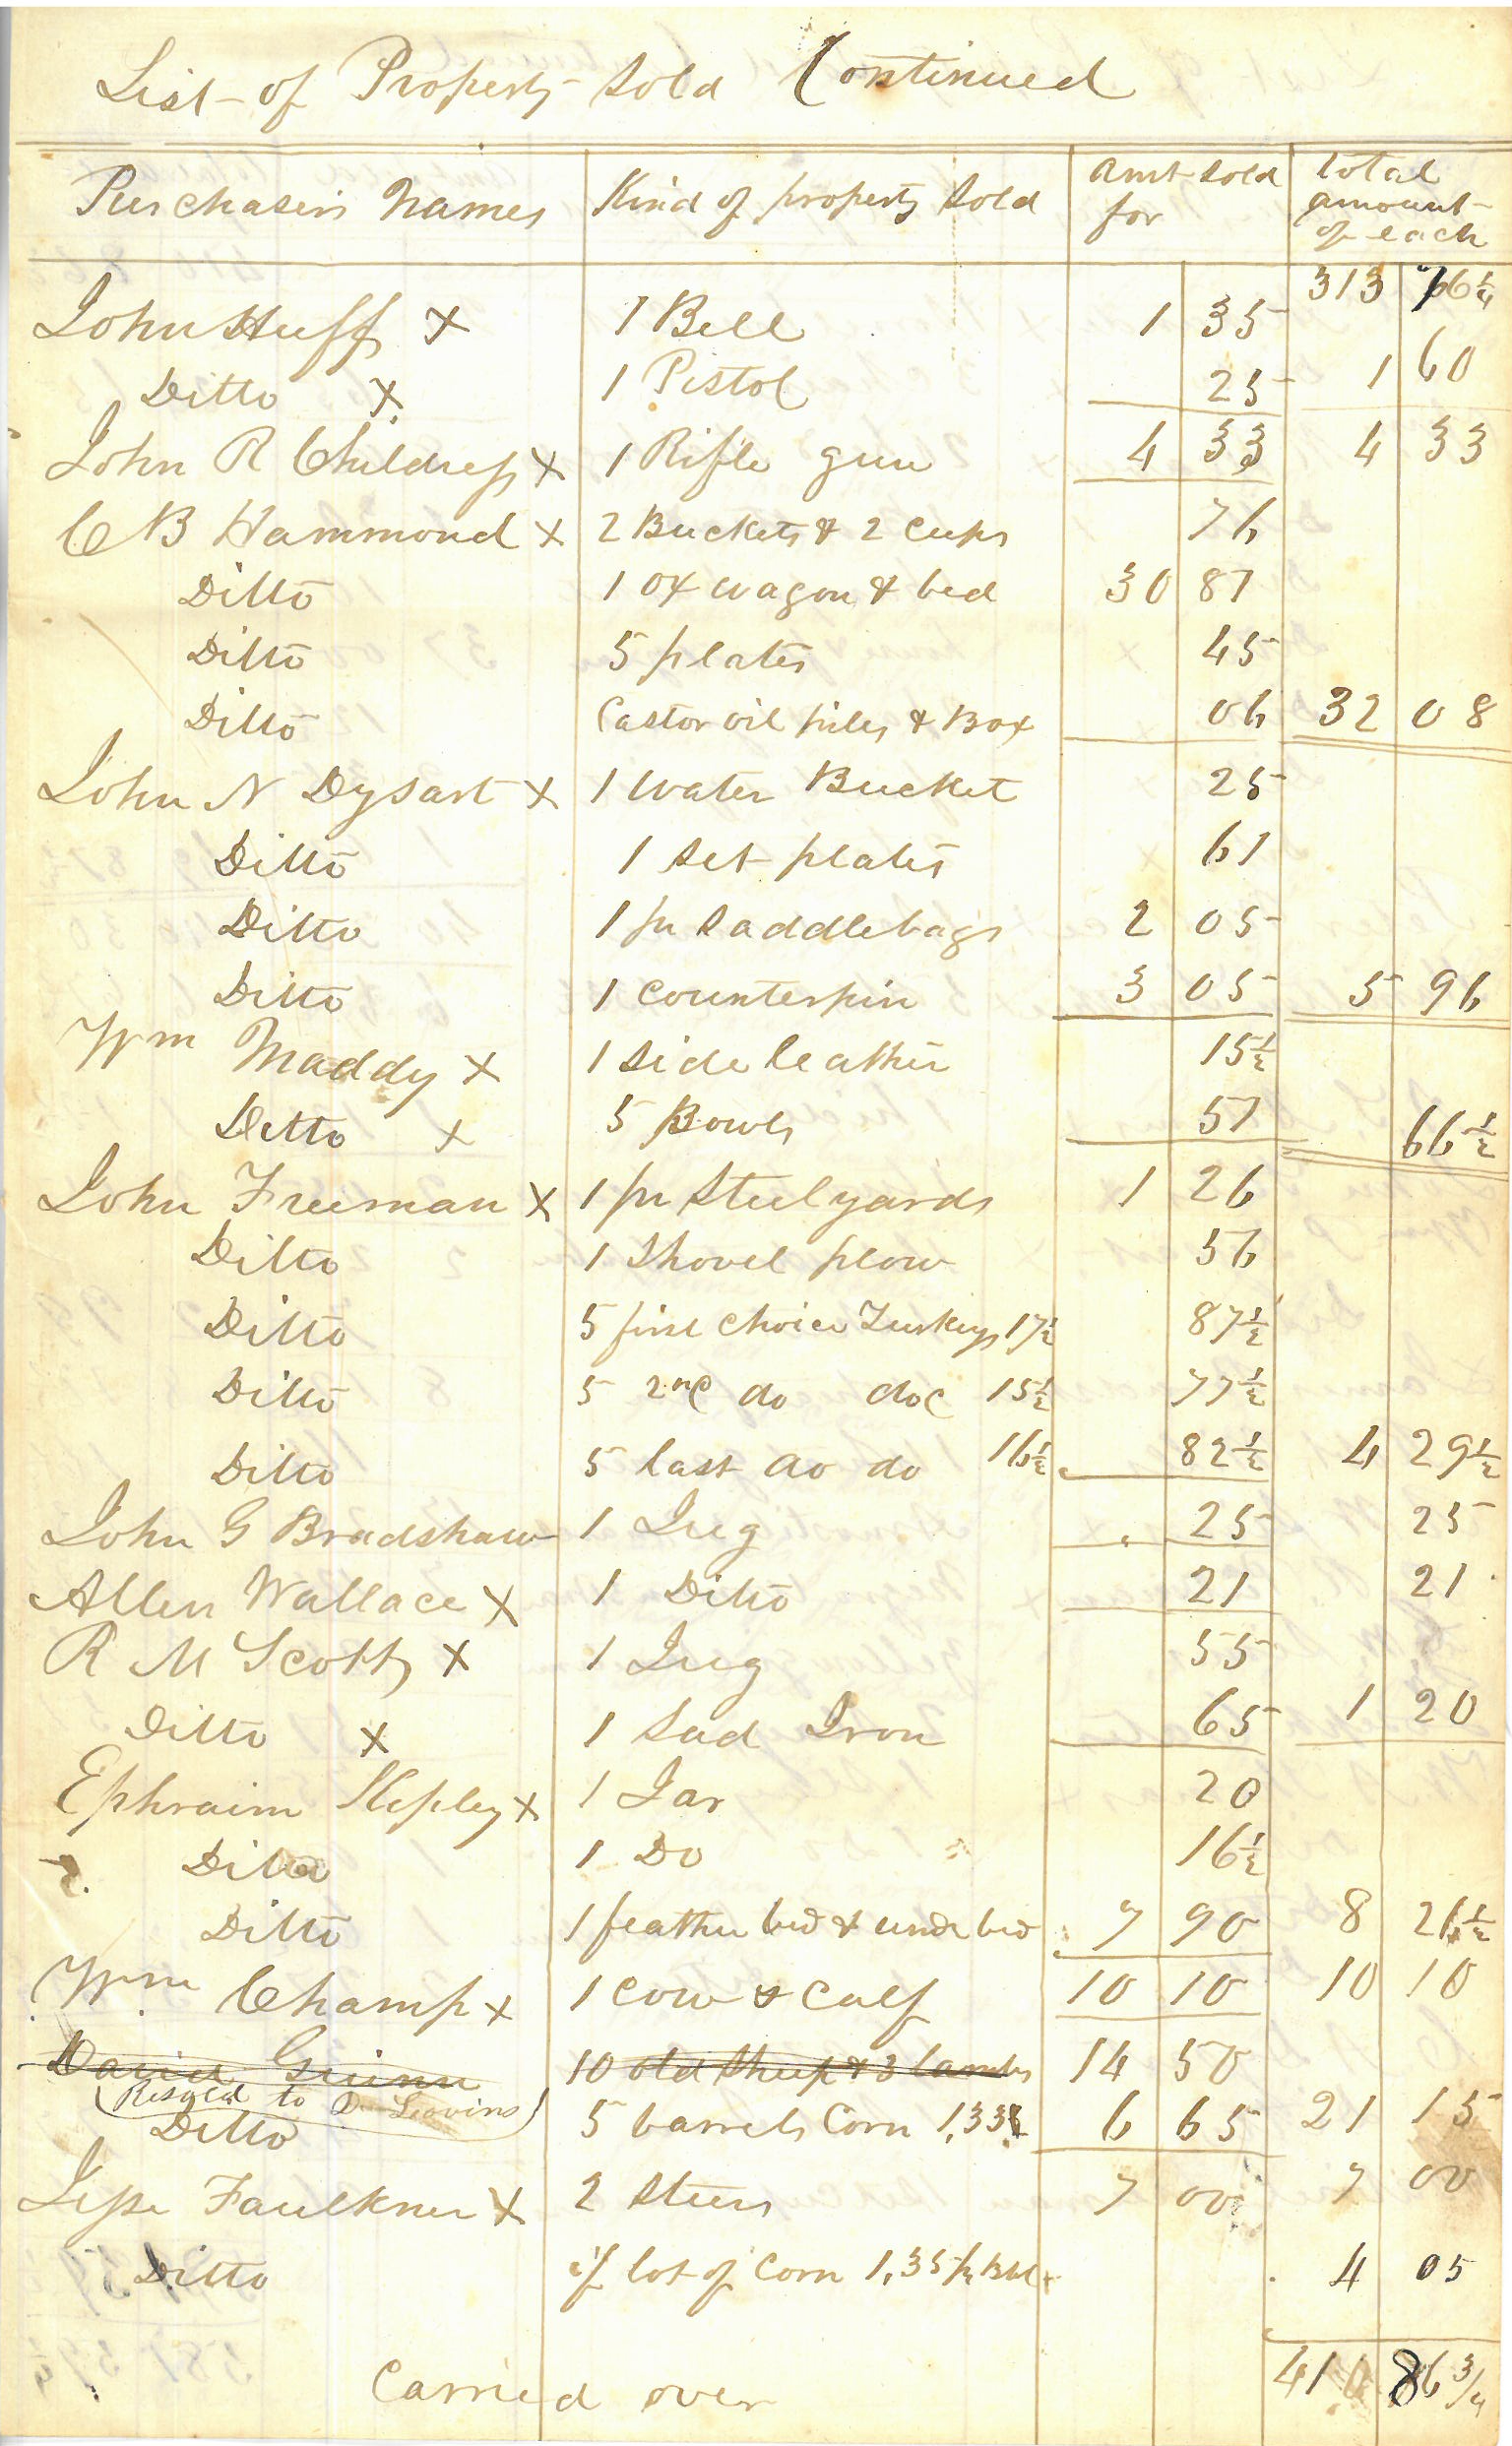 List of Property Sold Continued
Purchasers Names Kind of property Sold Amt Sold for total amount of each
313 76 1/4
John Huff X 1 Bell 1 35
Ditto X 1 Pistol 25 1 60
John R Childress X 1 Rifle gun 4 33 4 33
C B Hammond X 2 Buckets & 2 Cups 76
Ditto 1 ox wagon & bed 30 81
Ditto 5 plates 45
Ditto Castor oil piles & Box 06 32 08
John N Dysart X 1 water Bucket 25
Ditto 1 Set plates 61
Ditto 1 pr Saddlebags 2 05
Ditto 1 counterpin 3 05 5 96
Wm Maddy X 1 Side leather 15 1/2
Ditto X 5 Bowls 51 66 1/2
John Freeman X 1 pr Steelyards 1 26
Ditto 1 Shovel plow 56
Ditto 5 first choice Turkeys 17 1/2 87 1/2
Ditto 5 2nd do do 15 1/2 77 1/2
Ditto 5 last do do 16 1/2 82 1/2 4 29 1/2
John G Bradshaw 1 Jug 25 25
Allen Wallace X 1 Ditto 21 21
R M Scott X 1 Jug 55
Ditto X 1 Sad Iron 65 1 20
Ephraim Kepley X 1 Jar 20
Ditto 1 Do 16 1/2
Ditto 1 feather bed & under bed 7 90 8 26 1/2
Wm Champ X 1 Cow & Calf 10 10 10 10
David Guinn 10 old Sheep & 3 lambs 14 50
(Resold to D Leovins)
Ditto 5 barrels Corn 1,33 6 65 21 15
Jesse Faulkner X 2 Steers 7 00 7 00
Ditto lot of Corn 1,35 pr Bbl 4 05
Carried over 410 86 3/4